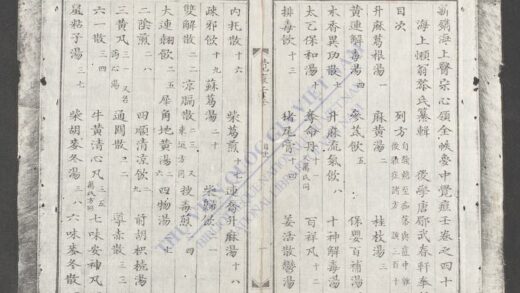 新鐫海上醫宗心領全帙夢中覺痘壬卷之四十
海上懶翁黎氏纂輯 後學唐郿武春軒奉
目次 列方
升麻葛根湯 一 麻黃湯 二 桂枝湯 三
黃連解毒湯 四 參芪飲 五 保嬰百補湯
木香異功散 七 升麻流氣飲 八 十神解毒湯
太乙保和湯 十 奪命丹 十一 百祥丸 十二
排毒飲 十三 猪尾膏 十四 羌活散鬱湯
內托散 十六 柴葛煎 十七 連翹升麻湯 十八
疎邪飲 十九 蘇葛湯 二十 柴歸飲
雙解散 二二 涼膈散 投毒散 四
大連翹飲 二五 犀角地黃湯 六 四物湯
二陰煎 二八 四順清涼飲 九 前胡枳梗湯
三黃丸 三一 又名瀉心湯 通關散 二 導赤散 三三
六一散 三四 牛黃清心丸 三五 萬氏方 七味安神丸
鼠粘子湯 三七 柴胡麥冬湯 三八 六味麥冬散
THƯ VIỆN QUỐC GIA VIỆT NAM
NATIONAL LIBRARY OF VIETNAM